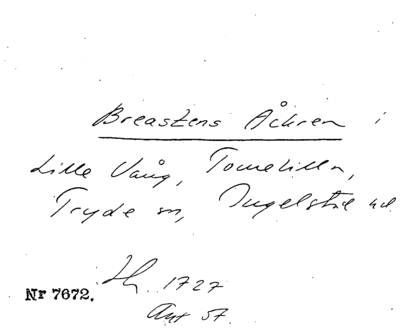 Breastens Åkren i
Lille Vång, Tomelilla,
Tryde sn, Ingelstad hd
Lh. 1727
Ant 57.
Nr 7672.